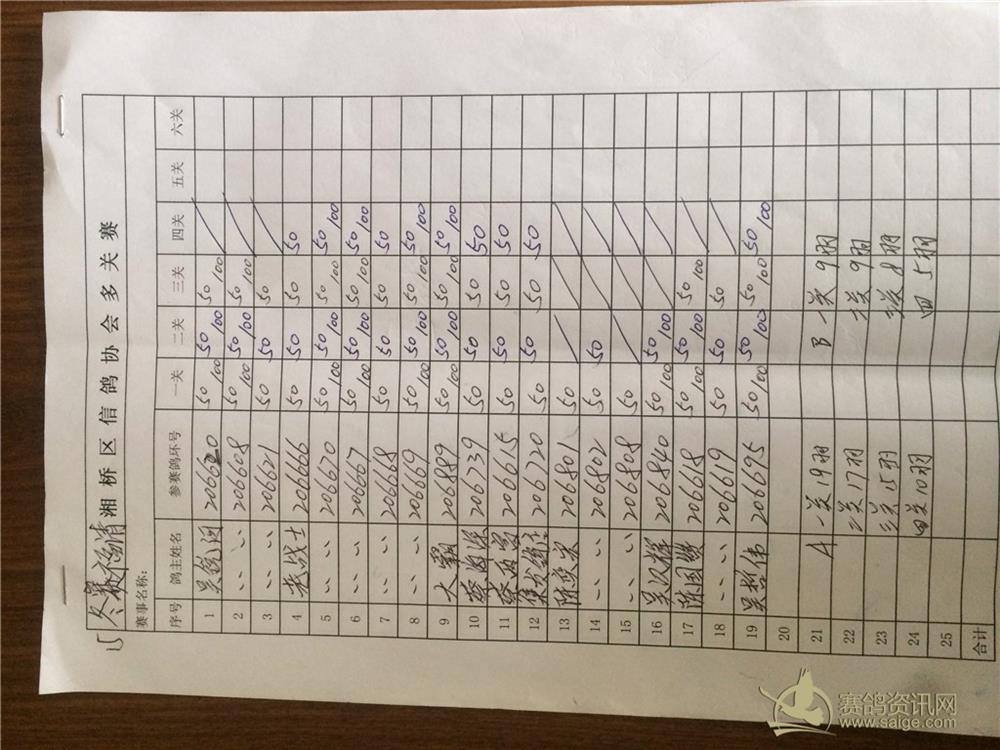 冬赛福清湘桥区信鸽协会多关赛
赛事名称:
序号 鸽主姓名 参赛鸽环号 一关 二关 三关 四关 五关 六关
1 206620 50/100 50/100 50/100 /
2 〃 206608 50/100 50/100 50/100 /
3 〃 206621 50 50 50 /
4 老战士 206666 50 50 50 50
5 〃 206670 50/100 50/100 50/100 50/100
6 〃 206667 50/100 50/100 50/100 50/100
7 〃 206668 50 50 50 50
8 〃 206669 50/100 50/100 50/100 50/100
9 206889 50/100 50/100 50/100 50/100
10 206739 50 50 50 50
11 206615 50 50 50 50
12 206720 50 50 50 50
13 206801 50 / / /
14 〃 206802 50 50 / /
15 〃 206808 50 / / /
16 206840 50/100 50/100 / /
17 206618 50/100 50/100 50/100 /
18 〃 206619 50 50 50 /
19 206695 50/100 50/100 50/100 50/100
20
21 A 一关19羽 B 一关9羽
22 二关17羽 二关9羽
23 三关15羽 三关8羽
24 四关10羽 四 5羽
25
合计
赛鸽资讯网
www.saige.com